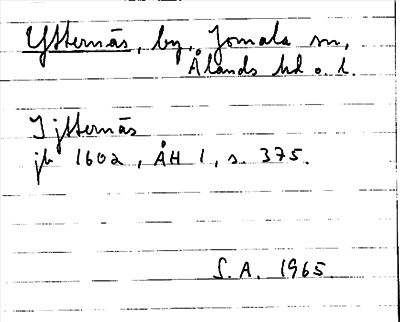 Ytternäs, by, Jomala sn,
Ålands hd o. l.
I jtternäs
jb 1602, ÅH 1, s. 375.
S.A. 1965.